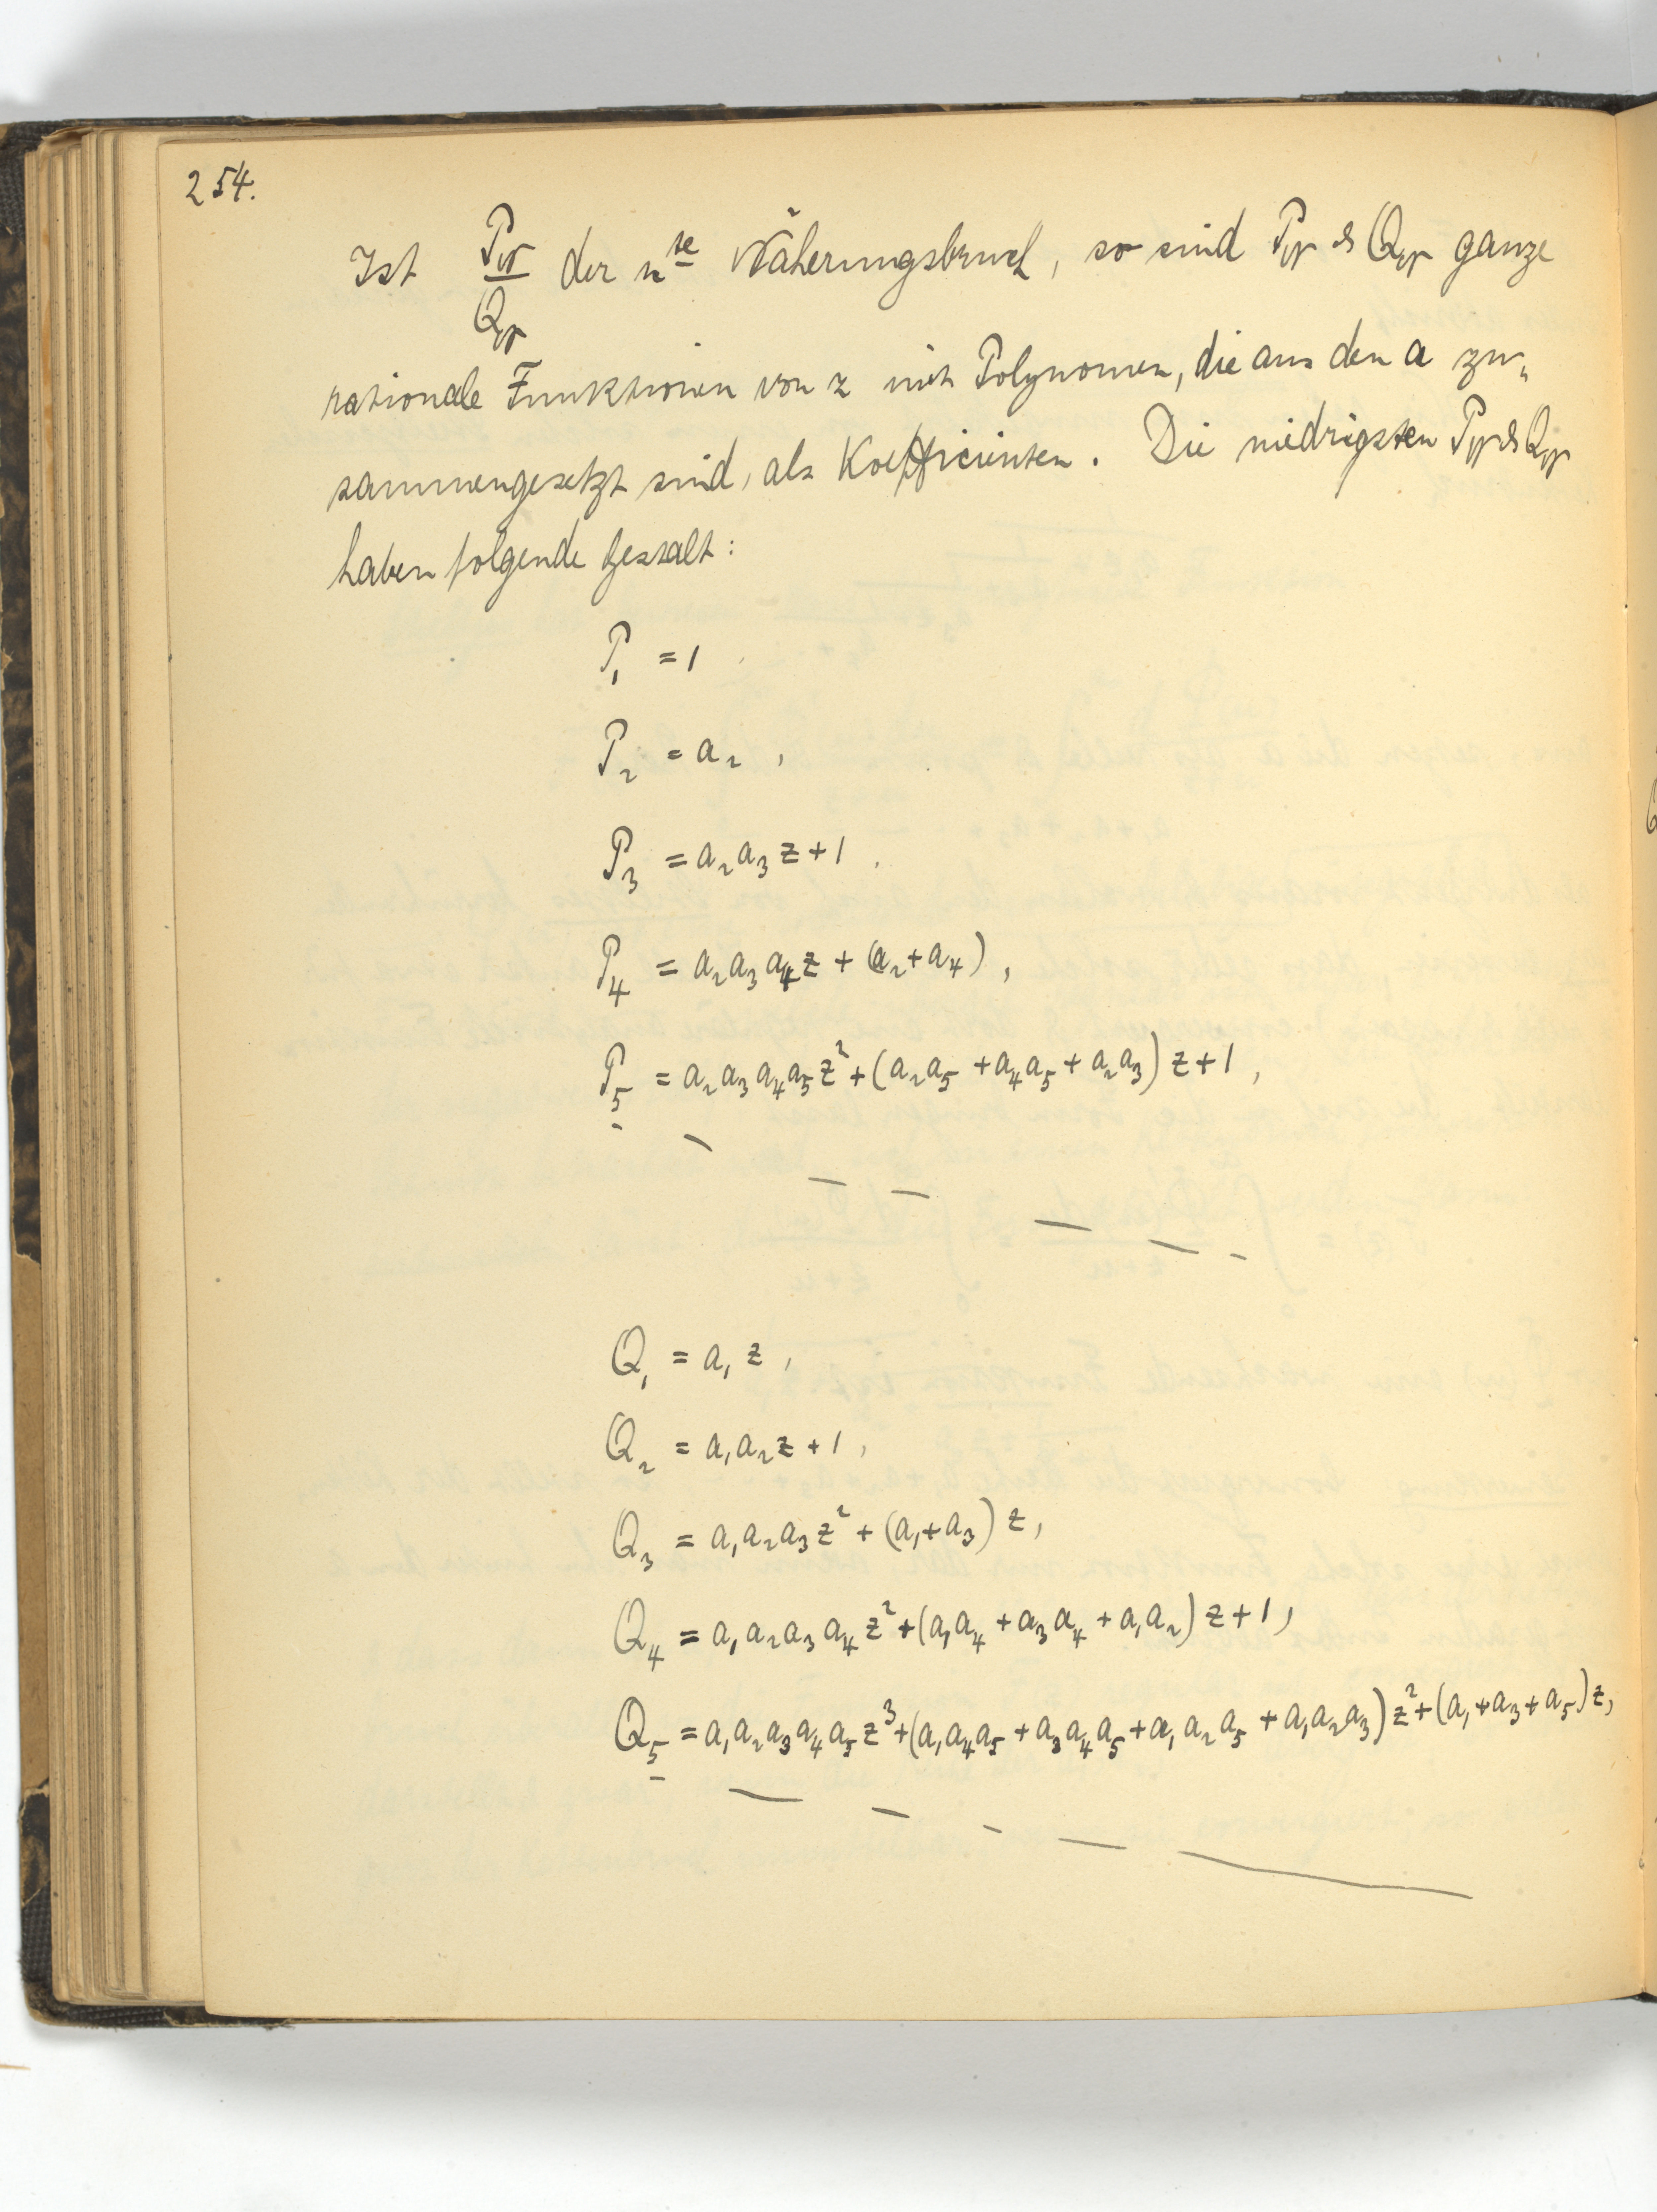 254.
Ist P_n/Q_n der n^te Näherungsbruch, so sind P_n & Q_n ganze
rationale Funktionen von z mit Polynomen, die aus den a zu„
sammengesetzt sind, als Koefficienten. Die niedrigsten P_n & Q_n
haben folgende Gestalt:
P_1 = 1
P_2 = a_2 ,
P_3 = a_2 a_3 z + 1 .
P_4 = a_2 a_3 a_4 z + (a_2 + a_4) ,
P_5 = a_2 a_3 a_4 a_5 z^2 + (a_2 a_5 + a_4 a_5 + a_2 a_3) z + 1 ,
Q_1 = a_1 z ,
Q_2 = a_1 a_2 z + 1 ,
Q_3 = a_1 a_2 a_3 z^2 + (a_1 + a_3) z ,
Q_4 = a_1 a_2 a_3 a_4 z^2 + (a_1 a_4 + a_3 a_4 + a_1 a_2) z + 1 ,
Q_5 = a_1 a_2 a_3 a_4 a_5 z^3 + (a_1 a_4 a_5 + a_3 a_4 a_5 + a_1 a_2 a_5 + a_1 a_2 a_3) z^2 + (a_1 + a_3 + a_5) z ,